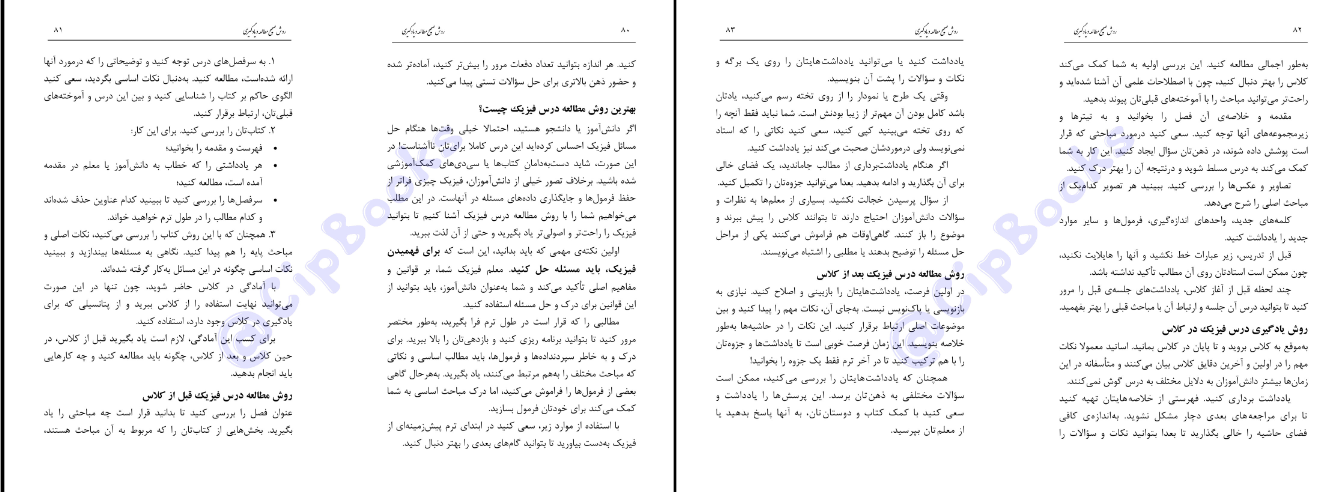 روش صحیح مطالعه و یادگیری
۸۰
کنید. هر اندازه بتوانید تعداد دفعات مرور را بیش‌تر کنید، آماده‌تر شده
و حضور ذهن بالاتری برای حل سؤالات تستی پیدا می‌کنید.
بهترین روش مطالعه درس فیزیک چیست؟
اگر دانش‌آموز یا دانشجو هستید، احتمالا خیلی وقت‌ها هنگام حل
مسائل فیزیک احساس کرده‌اید این درس کاملا برای‌تان ناآشناست! در
این صورت، شاید دست‌به‌دامانِ کتاب‌ها یا سی‌دی‌های کمک‌آموزشی
شده باشید. برخلاف تصور خیلی از دانش‌آموزان، فیزیک چیزی فراتر از
حفظ فرمول‌ها و جایگذاری داده‌های مسئله در آنهاست. در این مطلب
می‌خواهیم شما را با روش مطالعه درس فیزیک آشنا کنیم تا بتوانید
فیزیک را راحت‌تر و اصولی‌تر یاد بگیرید و حتی از آن لذت ببرید.
اولین نکته‌ی مهمی که باید بدانید، این است که برای فهمیدن
فیزیک، باید مسئله حل کنید. معلم فیزیک شما، بر قوانین و
مفاهیم اصلی تأکید می‌کند و شما به‌عنوان دانش‌آموز، باید بتوانید از
این قوانین برای درک و حل مسئله استفاده کنید.
مطالبی را که قرار است در طول ترم فرا بگیرید، به‌طور مختصر
مرور کنید تا بتوانید برنامه ریزی کنید و بازدهی‌تان را بالا ببرید. برای
درک و به خاطر سپردنداده‌ها و فرمول‌ها، باید مطالب اساسی و نکاتی
که مباحث مختلف را به‌هم مرتبط می‌کنند، یاد بگیرید. به‌هرحال گاهی
بعضی از فرمول‌ها را فراموش می‌کنید، اما درک مباحث اساسی به شما
کمک می‌کند برای خودتان فرمول بسازید.
با استفاده از موارد زیر، سعی کنید در ابتدای ترم پیش‌زمینه‌ای از
فیزیک به‌دست بیاورید تا بتوانید گام‌های بعدی را بهتر دنبال کنید.
روش صحیح مطالعه و یادگیری
۸۱
۱. به سرفصل‌های درس توجه کنید و توضیحاتی را که درمورد آنها
ارائه شده‌است، مطالعه کنید. به‌دنبال نکات اساسی بگردید، سعی کنید
الگوی حاکم بر کتاب را شناسایی کنید و بین این درس و آموخته‌های
قبلی‌تان، ارتباط برقرار کنید.
۲. کتاب‌تان را بررسی کنید. برای این کار:
• فهرست و مقدمه را بخوانید؛
• هر یادداشتی را که خطاب به دانش‌آموز یا معلم در مقدمه
آمده است، مطالعه کنید؛
• سرفصل‌ها را بررسی کنید تا ببینید کدام عناوین حذف شده‌اند
و کدام مطالب را در طول ترم خواهید خواند.
۳. همچنان که با این روش کتاب را بررسی می‌کنید، نکات اصلی و
مباحث پایه را هم پیدا کنید. نگاهی به مسئله‌ها بیندازید و ببینید
نکات اساسی چگونه در این مسائل به‌کار گرفته شده‌اند.
با آمادگی در کلاس حاضر شوید، چون تنها در این صورت
می‌توانید نهایت استفاده را از کلاس ببرید و از پتانسیلی که برای
یادگیری در کلاس وجود دارد، استفاده کنید.
برای کسب این آمادگی، لازم است یاد بگیرید قبل از کلاس، در
حین کلاس و بعد از کلاس، چگونه باید مطالعه کنید و چه کارهایی
باید انجام بدهید.
روش مطالعه درس فیزیک قبل از کلاس
عنوان فصل را بررسی کنید تا بدانید قرار است چه مباحثی را یاد
بگیرید. بخش‌هایی از کتاب‌تان را که مربوط به آن مباحث هستند،
@CipBooks
روش صحیح مطالعه و یادگیری
۸۲
به‌طور اجمالی مطالعه کنید. این بررسی اولیه به شما کمک می‌کند
کلاس را بهتر دنبال کنید، چون با اصطلاحات علمی آن آشنا شده‌اید و
راحت‌تر می‌توانید مباحث را با آموخته‌های قبلی‌تان پیوند بدهید.
مقدمه و خلاصه‌ی آن فصل را بخوانید و به تیترها و
زیرمجموعه‌های آنها توجه کنید. سعی کنید درمورد مباحثی که قرار
است پوشش داده شوند، در ذهن‌تان سؤال ایجاد کنید. این کار به شما
کمک می‌کند به درس مسلط شوید و درنتیجه آن را بهتر درک کنید.
تصاویر و عکس‌ها را بررسی کنید. ببینید هر تصویر کدام‌یک از
مباحث اصلی را شرح می‌دهد.
کلمه‌های جدید، واحدهای اندازه‌گیری، فرمول‌ها و سایر موارد
جدید را یادداشت کنید.
قبل از تدریس، زیر عبارات خط نکشید و آنها را هایلایت نکنید،
چون ممکن است استادتان روی آن مطالب تأکید نداشته باشد.
چند لحظه قبل از آغاز کلاس، یادداشت‌های جلسه‌ی قبل را مرور
کنید تا بتوانید درس آن جلسه و ارتباط آن با مباحث قبلی را بهتر بفهمید.
روش یادگیری درس فیزیک در کلاس
به‌موقع به کلاس بروید و تا پایان در کلاس بمانید. اساتید معمولا نکات
مهم را در اولین و آخرین دقایق کلاس بیان می‌کنند و متأسفانه در این
زمان‌ها بیشتر دانش‌آموزان به دلایل مختلف به درس گوش نمی‌کنند.
یادداشت برداری کنید. فهرستی از خلاصه‌هایتان تهیه کنید
تا برای مراجعه‌های بعدی دچار مشکل نشوید. به‌اندازه‌ی کافی
فضای حاشیه را خالی بگذارید تا بعدا بتوانید نکات و سؤالات را
روش صحیح مطالعه و یادگیری
۸۳
یادداشت کنید یا می‌توانید یادداشت‌هایتان را روی یک برگه و
نکات و سؤالات را پشت آن بنویسید.
وقتی یک طرح یا نمودار را از روی تخته رسم می‌کنید، یادتان
باشد کامل بودن آن مهم‌تر از زیبا بودنش است. شما نباید فقط آنچه را
که روی تخته می‌بینید کپی کنید، سعی کنید نکاتی را که استاد
نمی‌نویسد ولی درموردشان صحبت می‌کند نیز یادداشت کنید.
اگر هنگام یادداشت‌برداری از مطالب جاماندید، یک فضای خالی
برای آن بگذارید و ادامه بدهید. بعدا می‌توانید جزوه‌تان را تکمیل کنید.
از سؤال پرسیدن خجالت نکشید. بسیاری از معلم‌ها به نظرات و
سؤالات دانش‌آموزان احتیاج دارند تا بتوانند کلاس را پیش ببرند و
موضوع را باز کنند. گاهی‌اوقات هم فراموش می‌کنند یکی از مراحل
حل مسئله را توضیح بدهند یا مطلبی را اشتباه می‌نویسند.
روش مطالعه درس فیزیک بعد از کلاس
در اولین فرصت، یادداشت‌هایتان را بازبینی و اصلاح کنید. نیازی به
بازنویسی یا پاک‌نویس نیست. به‌جای آن، نکات مهم را پیدا کنید و بین
موضوعات اصلی ارتباط برقرار کنید. این نکات را در حاشیه‌ها به‌طور
خلاصه بنویسید. این زمان فرصت خوبی است تا یادداشت‌ها و جزوه‌تان
را با هم ترکیب کنید تا در آخر ترم فقط یک جزوه را بخوانید!
همچنان که یادداشت‌هایتان را بررسی می‌کنید، ممکن است
سؤالات مختلفی به ذهن‌تان برسد. این پرسش‌ها را یادداشت و
سعی کنید با کمک کتاب و دوستان‌تان، به آنها پاسخ بدهید یا
از معلم‌تان بپرسید.
@CipBooks